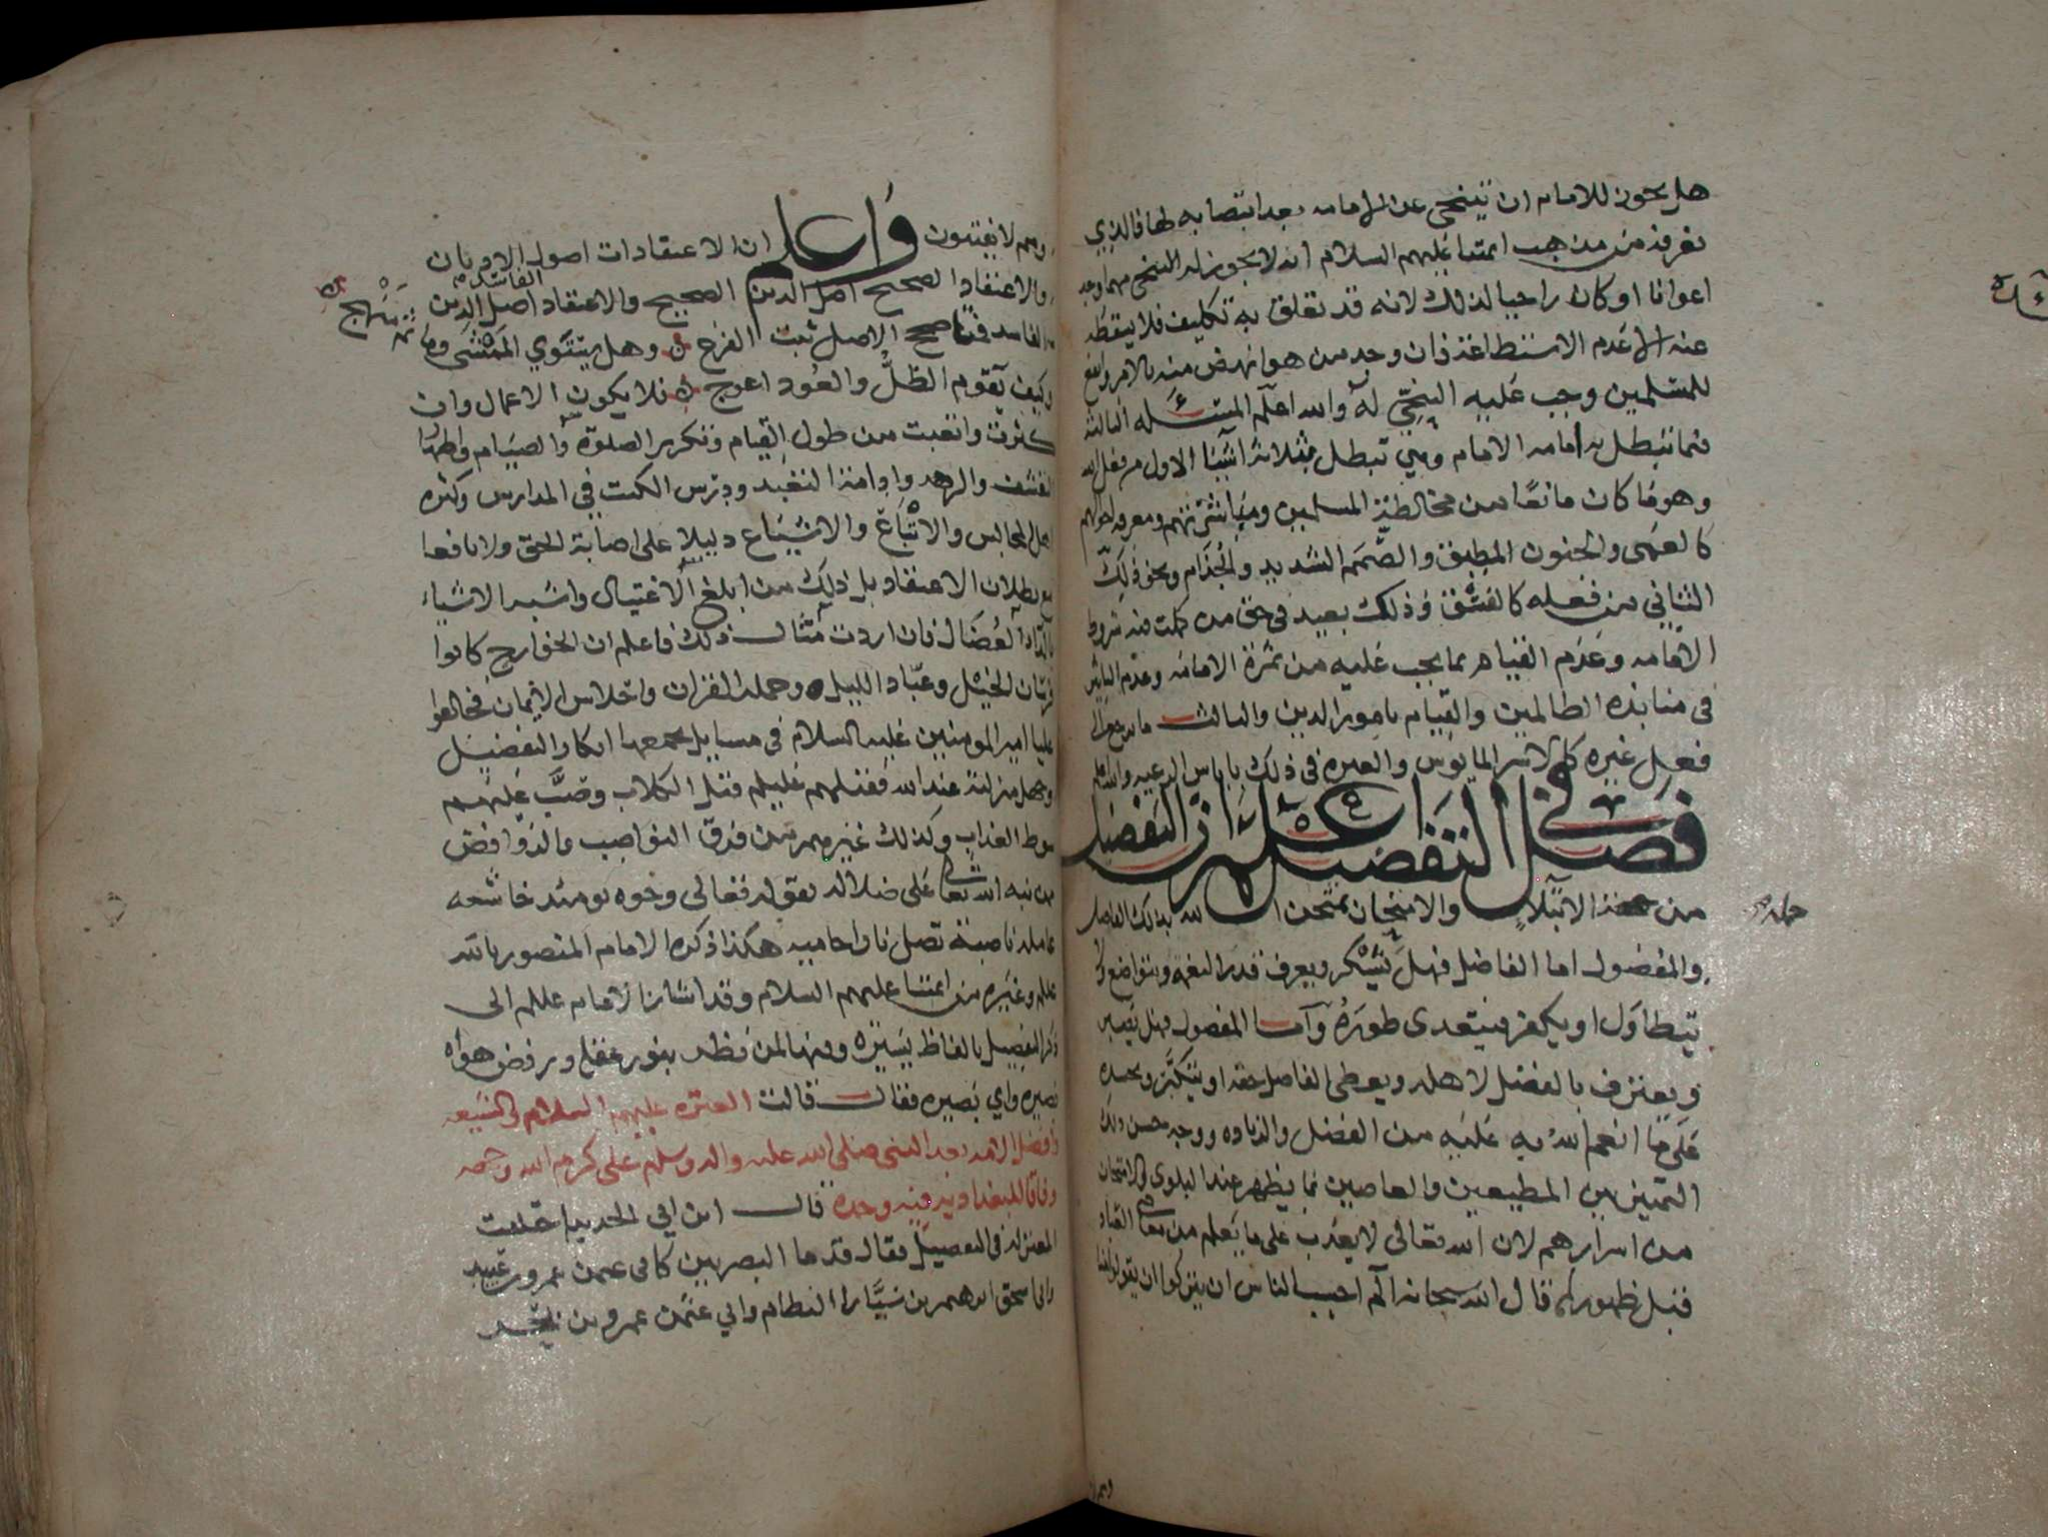 هل يجوز للامام ان يتنحى عن الامامه بعد انتصابه لها فالذي
نعرفه من مذهب ائمتنا عليهم السلام انه لا يجوز له التنحي مهما وجد
اعوانا او كان راجيا لذلك لانه قد تعلق به تكليف فلا يسقطه
عنه الا عدم الاستطاعة فان وجد من هو انهض منه بالامر وانفع
للمسلمين وجب عليه التنحي له والله اعلم المسئله الثالثة
فيما تبطل به امامه الامام وهي تبطل بثلاثة اشيا الاول من فعل الله
وهو ما كان مانعا من مخالطة المسلمين ومباشرتهم ومعرفه احوالهم
كالعمى والجنون المطبق والصمم الشديد والجذام ونحو ذلك
الثاني من فعله كالفسق وذلك بعيد في حق من كملت فيه شروط
الامامه وعدم القيام بما يجب عليه من ثمرة الامامه وعدم التاثير
في منابذه الظالمين والقيام بامور الدين والثالث ما يرجع الى
فعل غيره كالاسر المايوس والعبره في ذلك باياس الرعيه والله اعلم
فصل في التفضيل اعلم ان التفضيل
من جمله الابتلاء والامتحان يمتحن الله بذلك الفاضل
والمفضول اما الفاضل فهل يشكر ويعرف قدر النعمه ويتواضع ولا
يتطاول او يكفر فيتعدى طوره واما المفضول فهل يصبر
ويعترف بالفضل لاهله ويعطي الفاضل حقه او يتكبر ويحسده
على ما انعم الله به عليه من الفضل والزياده ووجه حسن ذلك
التمييز بين المطيعين والعاصين بما يظهر عند البلوى والامتحان
من اسرارهم لان الله تعالى لا يعذب على ما يعلم من معاصي العباد
قبل ظهورها كما قال الله سبحانه الم احسب الناس ان يتركوا ان يقولوا امنا
وهم لا
وهم لا يفتنون واعلم ان الاعتقادات اصول الاديان
والاعتقاد الصحيح اصل الدين الصحيح والاعتقاد الفاسد اصل الدين
الفاسد الاصل ثبت الفرع وهل يستوي الممشى وما ثم منهج
وكيف يقوم الظل والعود اعوج فلا يكون الاعمال وان
كثرت واتعبت من طول القيام وتكرير الصلوة والصيام واظهار
التقشف والزهد وادامة التعبد ودرس الكتب في المدارس وكثره
اهل المجالس والاتباع والاشياع دليلا على اصابة الحق ولا نافعا
مع بطلان الاعتقاد بل ذلك من ابلغ الاغتيال واشبه الاشياء
بالداء العضال فان اردت مثال ذلك فاعلم ان الخوارج كانوا
فرسان الخيل وعباد الليل وحملة القران واحلاس الايمان فخالفوا
عليا امير المومنين عليه السلام في مسايل يجمعها انكار التفضيل
وجهل منزلته عند الله فقتلهم عليلم قتل الكلاب وصب عليهم
سوط العذاب وكذلك غيرهم من فرق النواصب والروافض
ممن نبه الله تعالى على ضلاله بقوله تعالى وجوه يومئذ خاشعه
عاملة ناصبة تصلى نارا حاميه هكذا ذكره الامام المنصور بالله
عليلم وغيره من ائمتنا عليهم السلام وقد اشار الامام عليلم الى
ذكر التفضيل بالفاظ يسيره وفيها لمن نظر بنور عقله ورفض هواه
بصيره واي بصيره فقال قالت العتره عليهم السلام والشيعه
وافضل الامه بعد النبي صلى الله عليه واله وسلم علي كرم الله وجهه
وفاقا للبغداديه وحده قال ابن ابي الحديد اختلفت
المعتزله في التفضيل فقال قدما البصريين كابي عثمن عمرو بن عبيد
وابي اسحق ابرهيم بن سيار النظام وابي عثمن عمرو بن